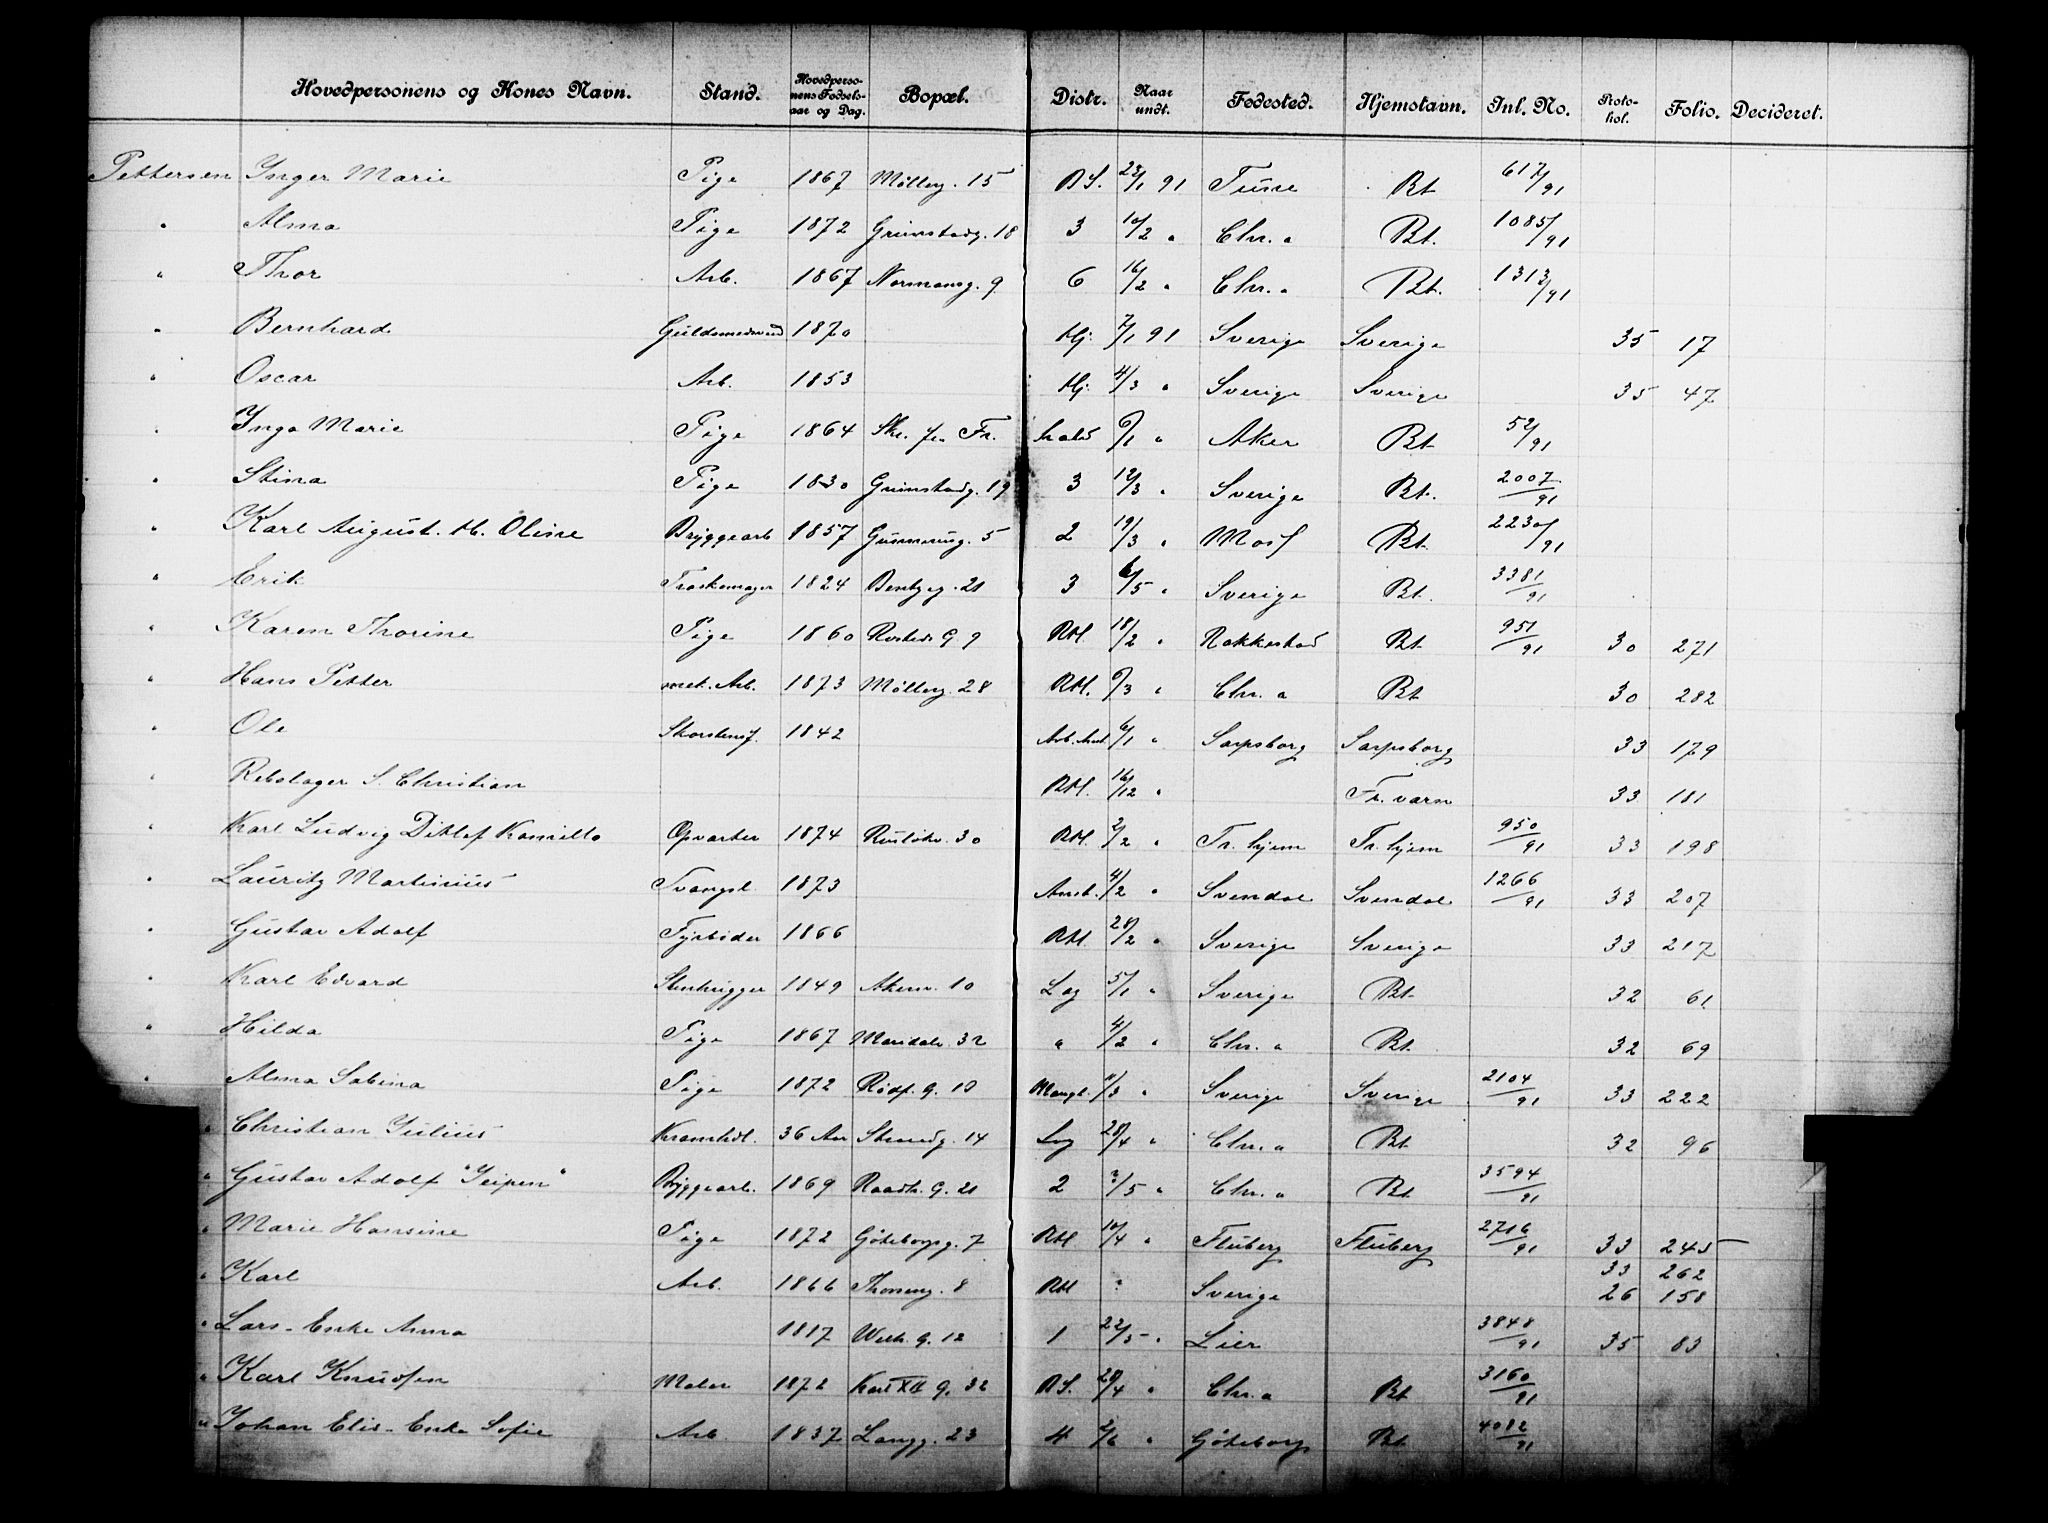 Hovedpersonens og Kones Navn. Stand. Hovedpersonens Fødselsaar og Dag. Bopæl. Distr. Naar undt. Fødested. Hjemstavn. Inl. No. Protokol. Folio. Decideret.
Pettersen Inger Marie Pige 1867 Møllerg. 15 B S. 23/1 91 Tune Bt 617/91
" Alma Pige 1872 Grimstadg. 18 3 10/2 " Chr. a Bt. 1085/91
" Thor Arb. 1867 Normansg. 9 6 16/2 " Chr. a Bt. 1313/91
" Bernhard Guldsmedsvend 1870 Hj. 7/1 91 Sverige Sverige 35 17
" Oscar Arb. 1853 Hj. 4/3 " Sverige Sverige 35 47
" Inga Marie Pige 1864 6/1 " Aker Bt 52/91
" Stina Pige 1830 Grimstadg. 19 3 12/3 " Sverige Bt. 2007/91
" Karl August. H. Oline Bryggearb 1857 5 2 19/3 " Moss Bt. 2230/91
" Erik Træskomager 1824 21 3 6/5 " Sverige Bt. 3381/91
" Karen Thorine Pige 1860 Rosteds G 9 RH. 18/2 " Rakkestad Bt 951/91 30 271
" Hans Petter mek. Arb. 1873 Møllerg. 28 RH. 6/3 " Chr. a Bt 30 282
" Ole Skorstensf. 1842 Arb. Anst 6/1 " Sarpsborg Sarpsborg 33 179
" Rebslager S. Christian RH. 16/12 " Fr. værn 33 181
" Karl Ludvig Ditlef Kamillo Opvarter 1874 30 RH. 2/2 " Fr. hjem Fr. hjem 950/91 33 198
" Lauritz Martinius Tvangsl. 1873 Amt. 4/2 " Svendal Svendal 1266/91 33 207
" Gustav Adolf Fyrbøder 1866 RH 28/2 " Sverige Sverige 33 217
" Karl Edvard Stenhugger 1849 Akersv. 10 Lag 5/1 " Sverige Bt 32 61
" Hilda Pige 1867 Maridalv. 32 " 4/2 " Chr. a Bt 32 69
" Alma Sabina Pige 1872 Rødf. G. 10 11/3 " Sverige Sverige 2104/91 33 222
" Christian Julius Kramhdl. 36 Aar Strandg. 14 Lag 28/4 " Chr. a Bt 32 96
" Gustav Adolf "Jeipen" Bryggearb. 1869 Raadh. G. 21 2 /5 " Chr. a Bt 3594/91
" Marie Hansine Pige 1872 Göteborgg. 7 RH 10/4 " Fluberg Fluberg 2716/91 33 245
" Karl Arb. 1866 8 RH " Sverige 33 262
26 158
" Lars - Enke Anna 1817 Welh. G. 12 1 22/5 " Lier 3848/91 35 83
" Karl Knudsen Maler 1872 Karl XII G. 32 B S. 28/4 " Chr. a Bt 3160/91
" Johan Elis - Enke Sofie Arb. 1837 Langg. 23 4 2/6 " Göteborg Bt 4082/91